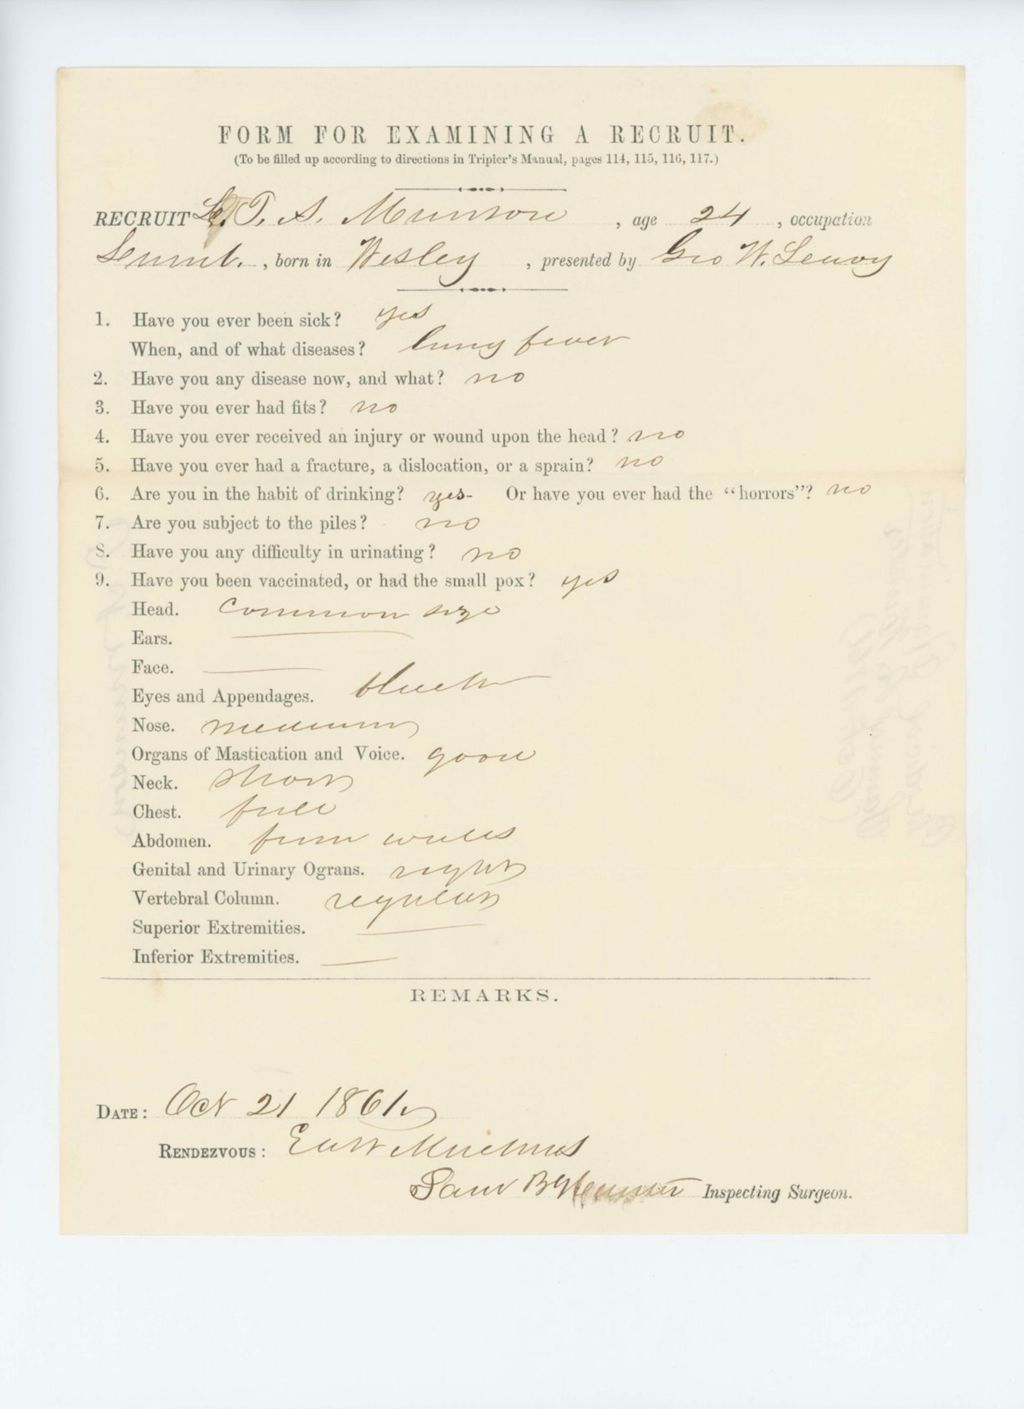 FORM FOR EXAMINING A RECRUIT.
(To be filled up according to directions in Tripler's Manual, pages 114, 115, 116, 117.)
RECRUIT T. S. Munson, age 24, occupation
, born in Wesley, presented by Geo W.
1. Have you ever been sick? yes
When, and of what diseases? lung fever
2. Have you any disease now, and what? no
3. Have you ever had fits? no
4. Have you ever received an injury or wound upon the head? no
5. Have you ever had a fracture, a dislocation, or a sprain? no
6. Are you in the habit of drinking? yes- Or have you ever had the "horrors"? no
7. Are you subject to the piles? no
8. Have you any difficulty in urinating? no
9. Have you been vaccinated, or had the small pox? yes
Head. Common size
Ears.
Face.
Eyes and Appendages. black
Nose. medium
Organs of Mastication and Voice. good
Neck. short
Chest. full
Abdomen. firm walls
Genital and Urinary Ograns. right
Vertebral Column. regular
Superior Extremities.
Inferior Extremities.
REMARKS.
DATE: Oct 21 1861
RENDEZVOUS: East Machias
Sam B Hunter Inspecting Surgeon.